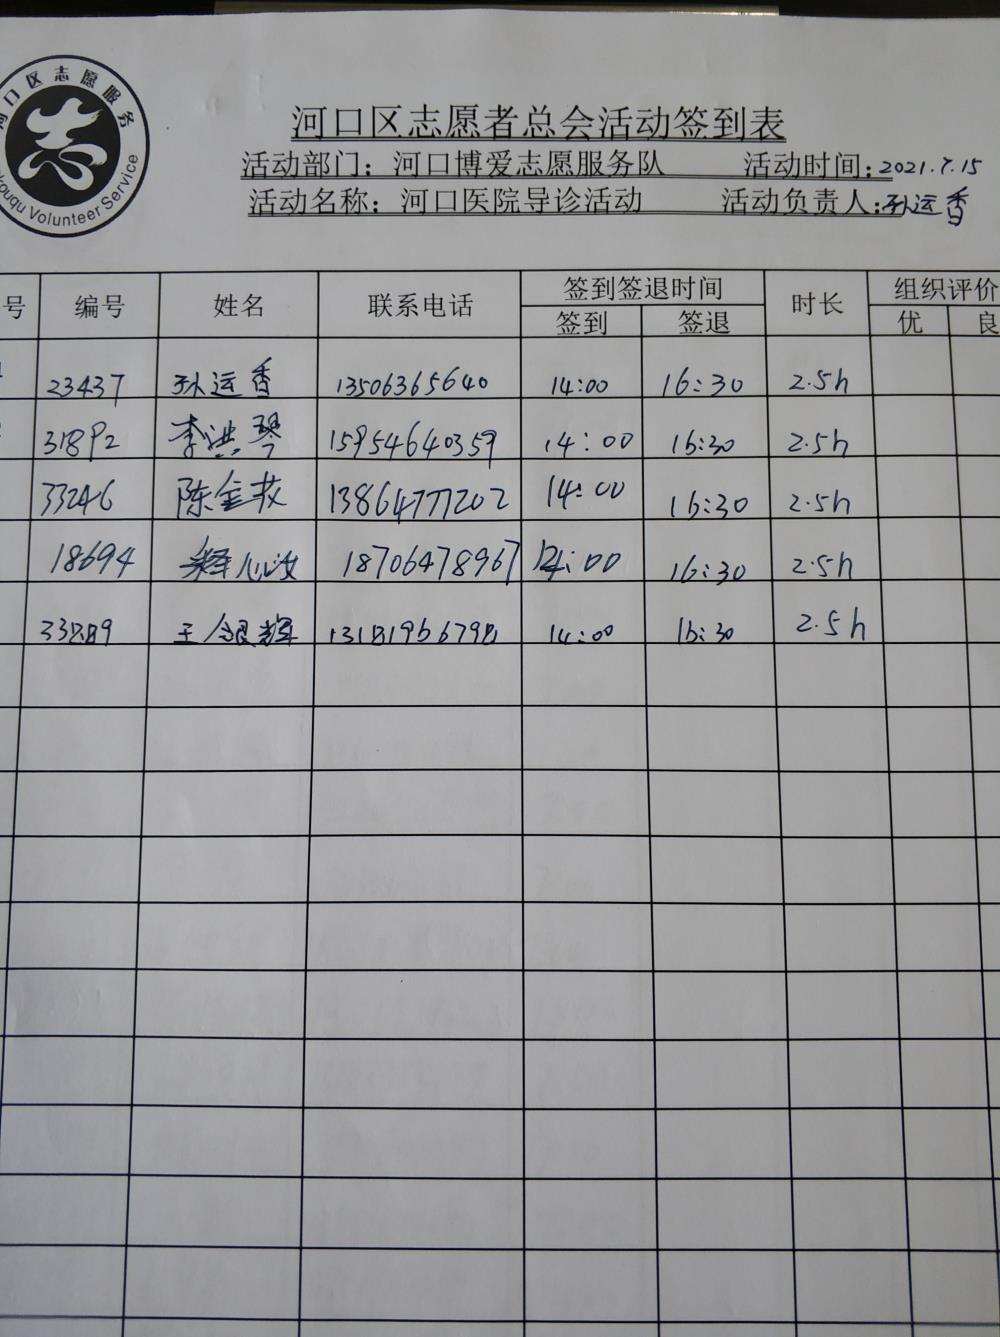 河口区志愿服务
kouqu Volunteer Service
河口区志愿者总会活动签到表
活动部门：河口博爱志愿服务队 活动时间：2021.7.15
活动名称：河口医院导诊活动 活动负责人：孙运香
号 编号 姓名 联系电话 签到签退时间 时长 组织评价
签到 签退 优 良
23437 孙运香 13506365640 14:00 16:30 2.5h
31892 李洪琴 15954640359 14:00 16:30 2.5h
33246 陈金 13864777202 14:00 16:30 2.5h
18694 18706478967 14:00 16:30 2.5h
王银辉 14:00 16:30 2.5h